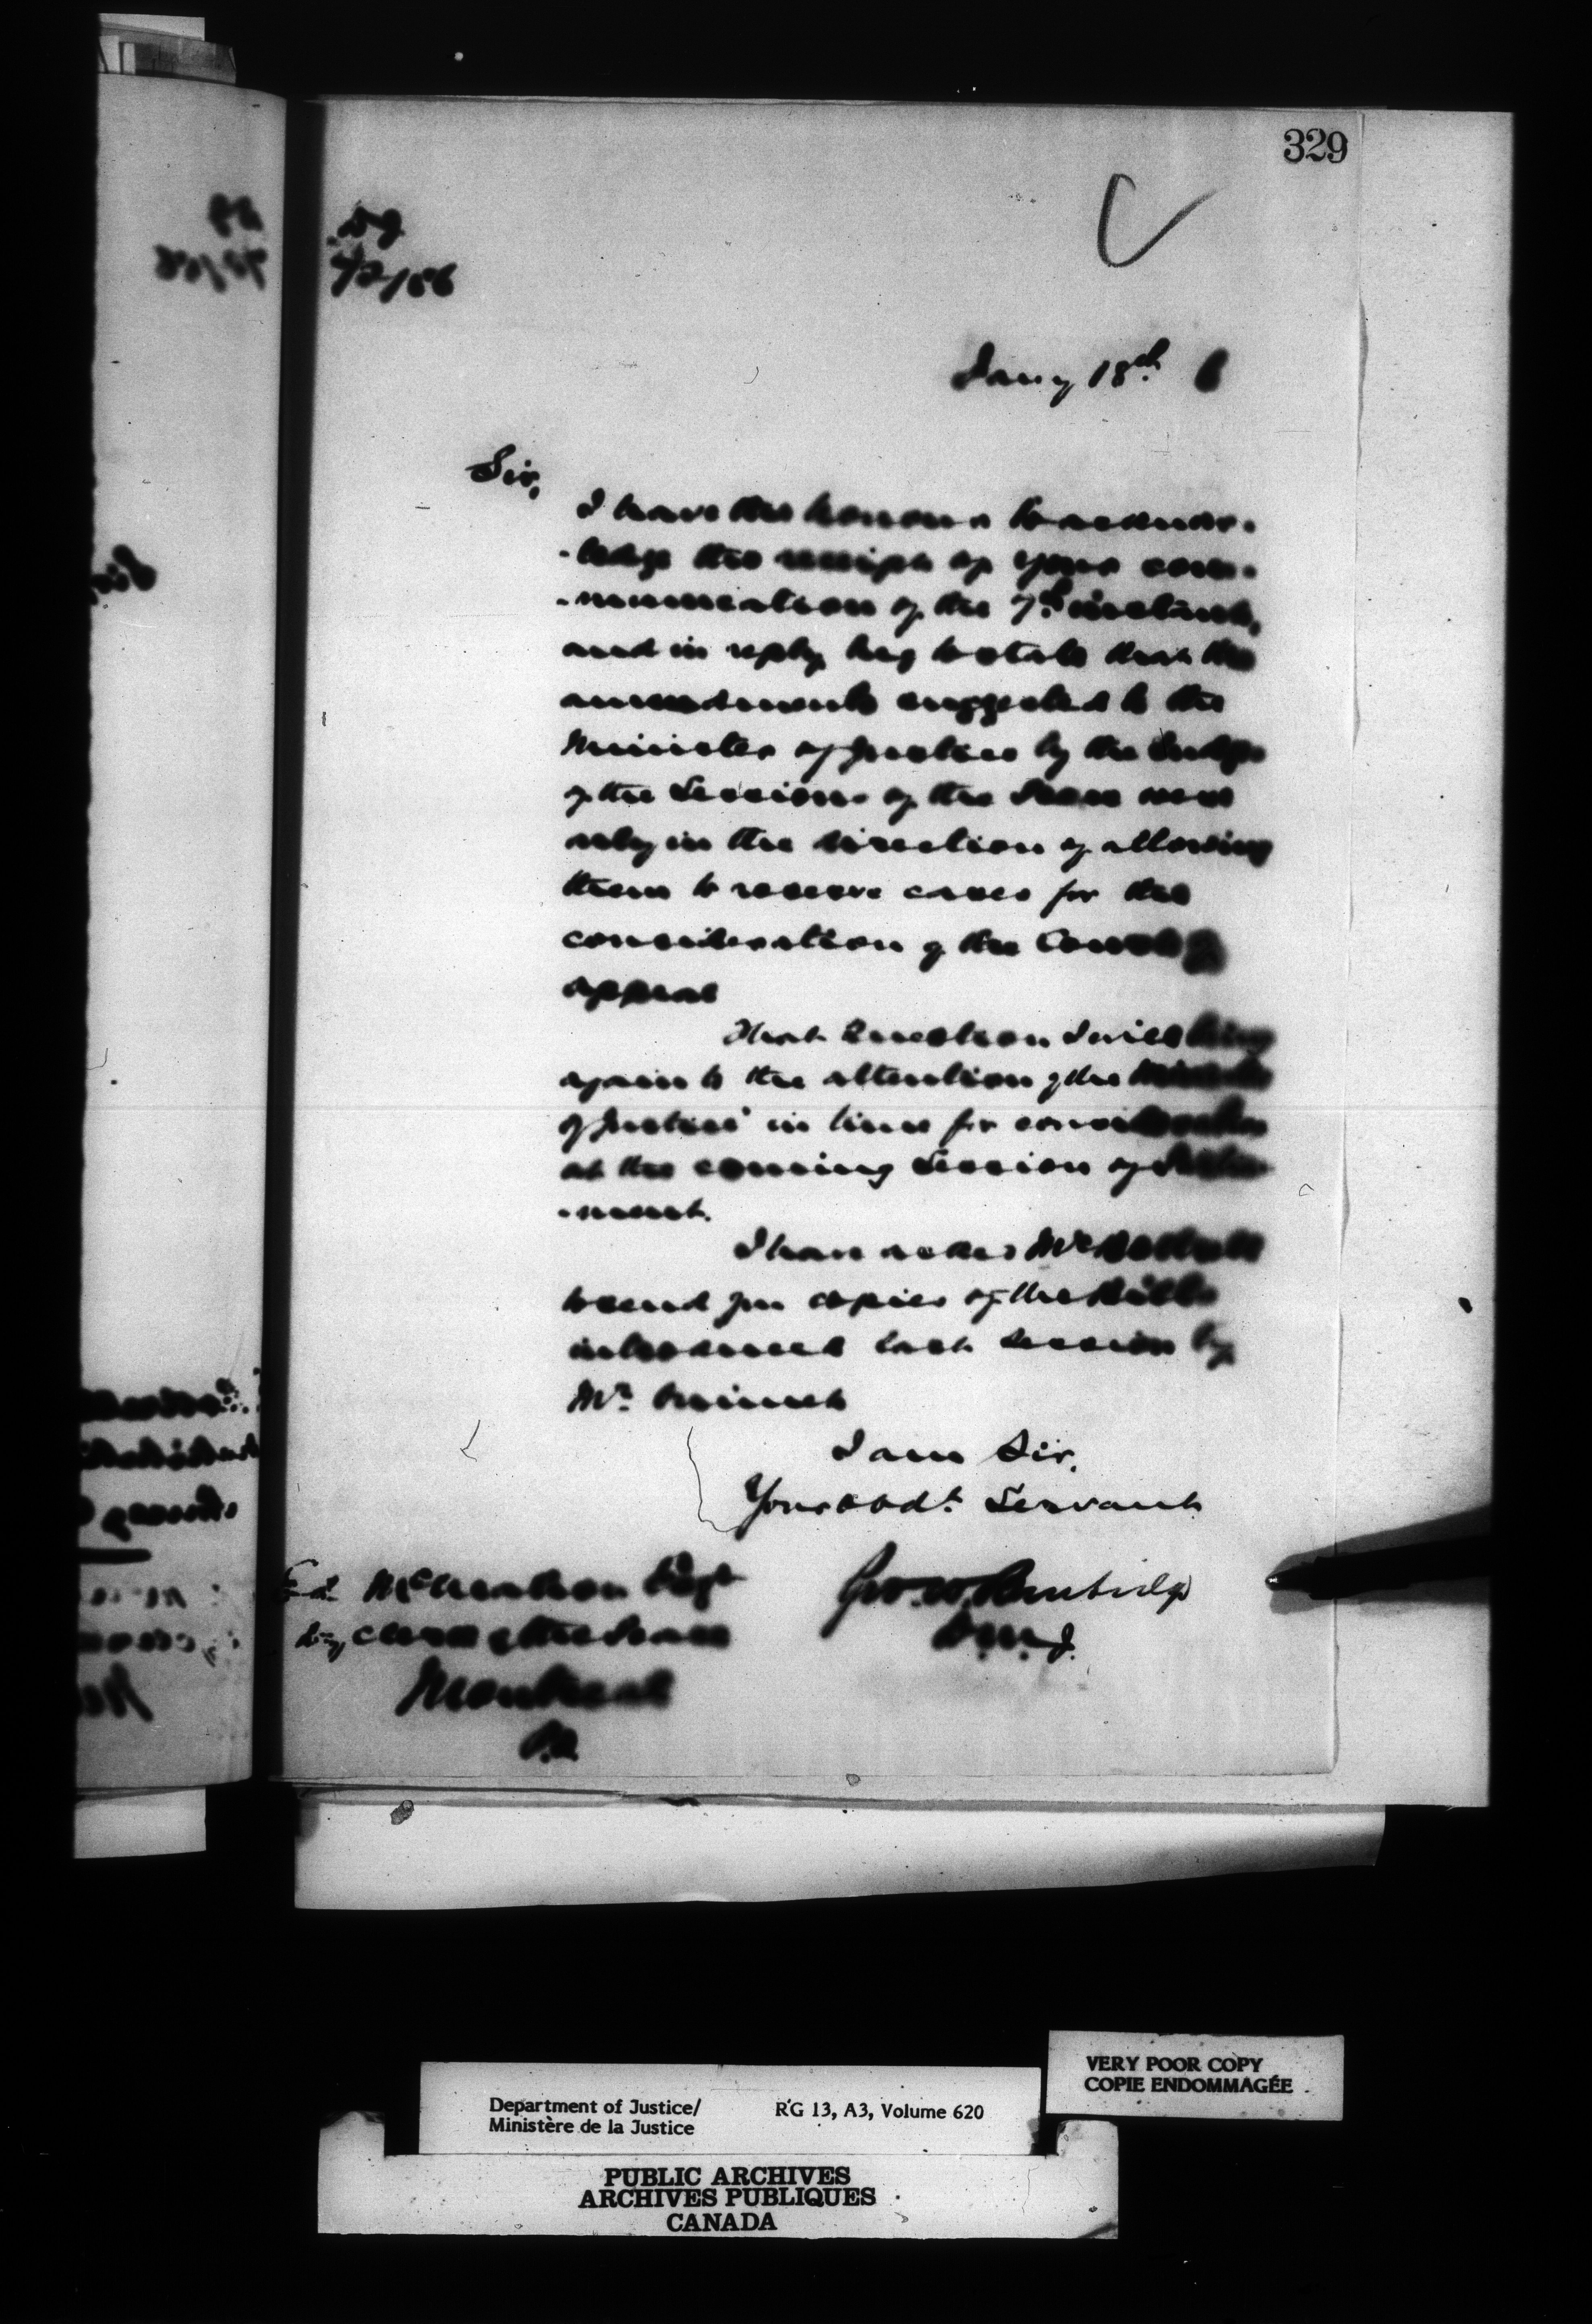 329
42/86
Jany 18th 6
Sir,
I have the honour to acknow-
-ledge the receipt of your com-
-munication of the 7th instant,
and in reply beg to state that the
amendments suggested to the
Minister of Justice by the Judge
of the Sessions of the Peace were
only in the direction of allowing
them to reserve cases for the
consideration of the Court of
appeal
That Question I will bring
again to the attention of the Minister
of Justice in time for consideration
at the coming Session of Parlia-
-ment.
I have asked Mr
to send you copies of the Bills
introduced last session by
Mr.
I am Sir,
Your obdt. Servant
Geo. W. Burbidge
D.M.J.
Esqr
Dy Clerk of the Peace
Montreal
P.Q.
Department of Justice/
Ministère de la Justice
RG 13, A3, Volume 620
VERY POOR COPY
COPIE ENDOMMAGÉE
PUBLIC ARCHIVES
ARCHIVES PUBLIQUES
CANADA